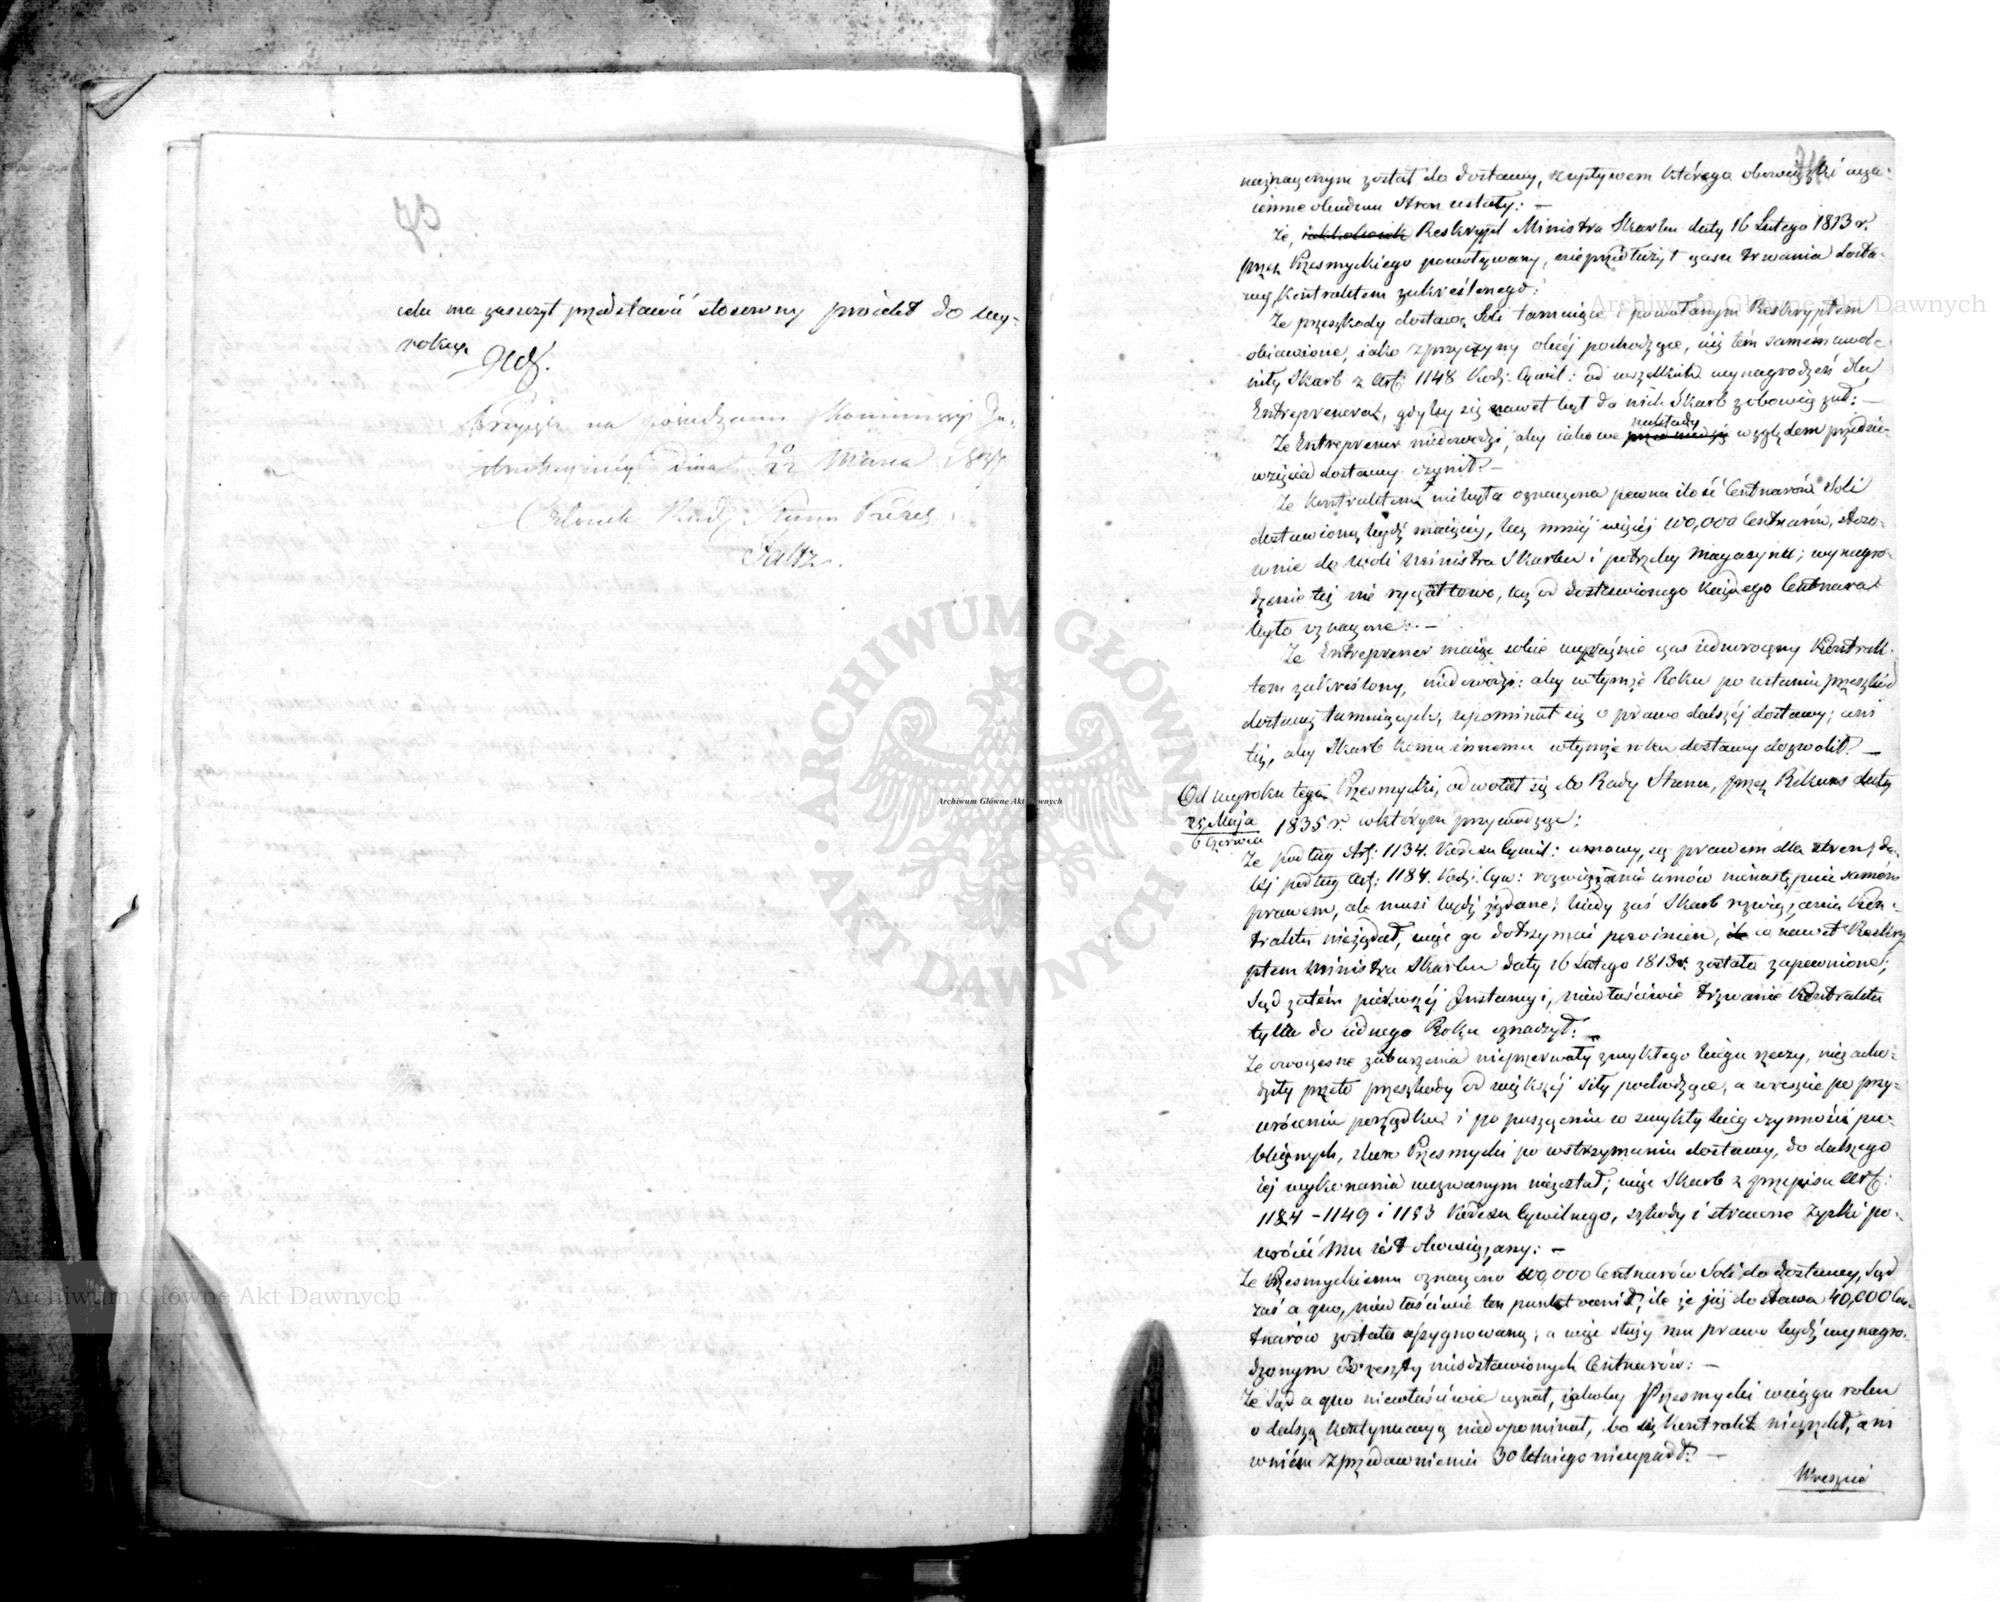 73
celu ma zaszczyt przedstawić stosowny proiekt do wy-
roku.
Przyięte na posiedzeniu Kommissyi In-
strukcyiney dnia 10/22 Marca
Członek Rady Stanu Prezes
Faltz.
naznaczonym został do dostawy, z upływem którego obowiązki wza-
iemne obudwu stron ustały: —
Że, Reskrypt Ministra Skarbu daty 16 Lutego 1813 r.
przez Przesmyckiego powoływany, nieprzedłużył czasu trwania dosta-
wy, Kontraktem zakreślonego:
Że przeszkody dostawę Soli tamuiące i powołanym Reskryptem
obiawione, iako z przyczyny obcéj pochodzące, iuż tém samém uwol-
niły Skarb z Art: 1148 Kod: Cywil: od wszelkich wynagrodzeń dla
Entreprenera, gdyby się nawet był do nich Skarb zobowiązał: —
Że Entreprener niedowodzi, aby iakowe nakłady względem przedsię-
wzięcia dostawy czynił: —
Że Kontraktem niebyła oznaczona pewna ilość Centnarów Soli
dostawioną bydź maiącéy, lecz mniéj więcéj 100,000 Centnarów, stoso-
wnie do woli Ministra Skarbu i potrzeby Magazynu; wynagro-
dzenie téż nie ryczałtowo, lecz od dostawionego każdego Centnara
było oznaczone: —
Że Entreprener maiąc sobie wyraźnie czas iednoroczny Kontrak-
tem zakreślony, niedowodzi: aby w tymże Roku po ustaniu przeszkód
dostawę tamuiących, upominał się o prawo dalszéj dostawy; ani
téż, aby Skarb komu innemu w tymże roku dostawy dozwolił: —
Od wyroku tego Przesmycki, odwołał się do Rady Stanu, przez Rekurs daty
25 Maja / 6 Czerwca 1835 r. w którym przywodząc:
Że podług Art: 1134. Kodexu Cywil: umowy, są prawem dla stron, da-
léj podług Art: 1184. Kod: Cyw: rozwiązanie umów nienastępuie samém
prawem, ale musi bydź żądane; kiedy zaś Skarb rozwiązania Kon-
traktu nieżądał, więc go dotrzymać powinien, co nawet Reskry-
ptem Ministra Skarbu daty 16 Lutego 1813 r. zostało zapewnione;
Sąd zatém pierwszéj Instancyi, niewłaściwie trwanie Kontraktu
tylko do iednego Roku oznaczył: —
Że owoczesne zaburzenia nieprzerwały zwykłego biegu rzeczy, niezacho-
dziły przeto przeszkody od większéj siły pochodzące, a wreszcie po przy-
wróceniu porządku i po puszczeniu w zwykły bieg czynności pu-
blicznych, skoro Przesmycki po wstrzymaniu dostawy, do dalszego
iéj wykonania wezwanym niezostał; więc Skarb z przepisu Art:
1184 – 1149 i 1153 Kodexu Cywilnego, szkody i stracone zyski po-
wrócić mu iest obowiązany: —
Że Przesmyckiemu oznaczono 100,000 Centnarów Soli do dostawy, Sąd
zaś a quo, niewłaściwie ten punkt ocenił, ile że iuż dostawa 40,000 Cen-
tnarów została assygnowaną; a więc służy mu prawo bydź wynagro-
dzonym co do reszty niedostawionych Centnarów: —
Że Sąd a quo niewłaściwie uznał, iakoby Przesmycki w ciągu roku
o dalszą kontynuacyą niedopominał, bo się Kontrakt niezrzekł, ani
w niém z przedawnieniem 30 letniego nieupadł: —
Wreszcie
Archiwum Główne Akt Dawnych
Archiwum Główne Akt Dawnych
Archiwum Główne Akt Dawnych
ARCHIWUM GŁÓWNE AKT DAWNYCH